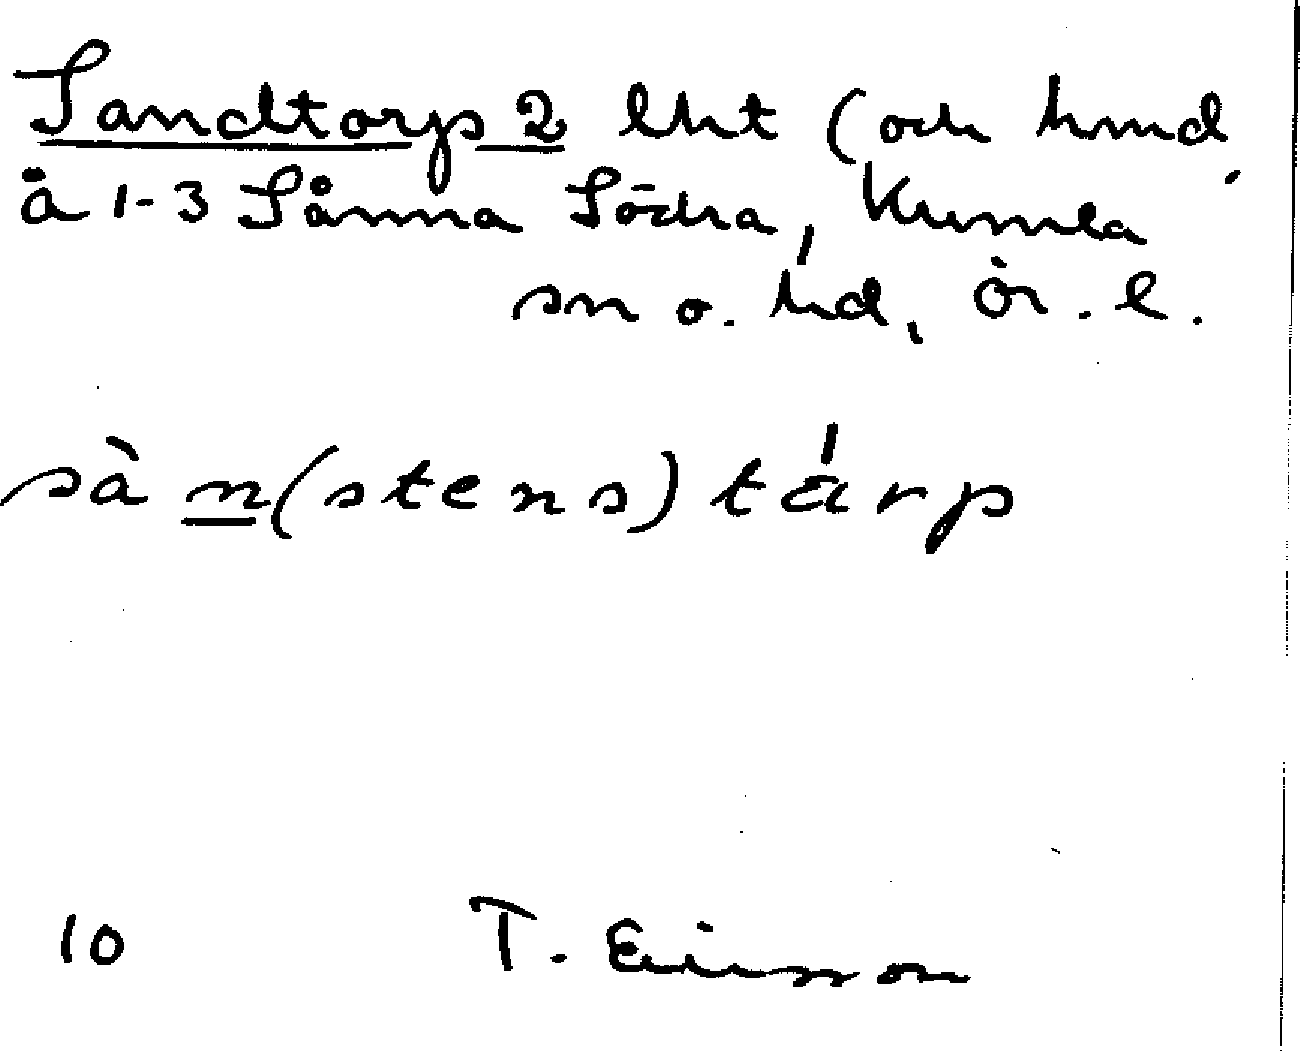 Sandtorp 2 lht (och hmd
å 1-3 Sånna Södra, Kumla
sn o. hd, Ör. l.
sà n(stens) tárp
10 T. Ericsson